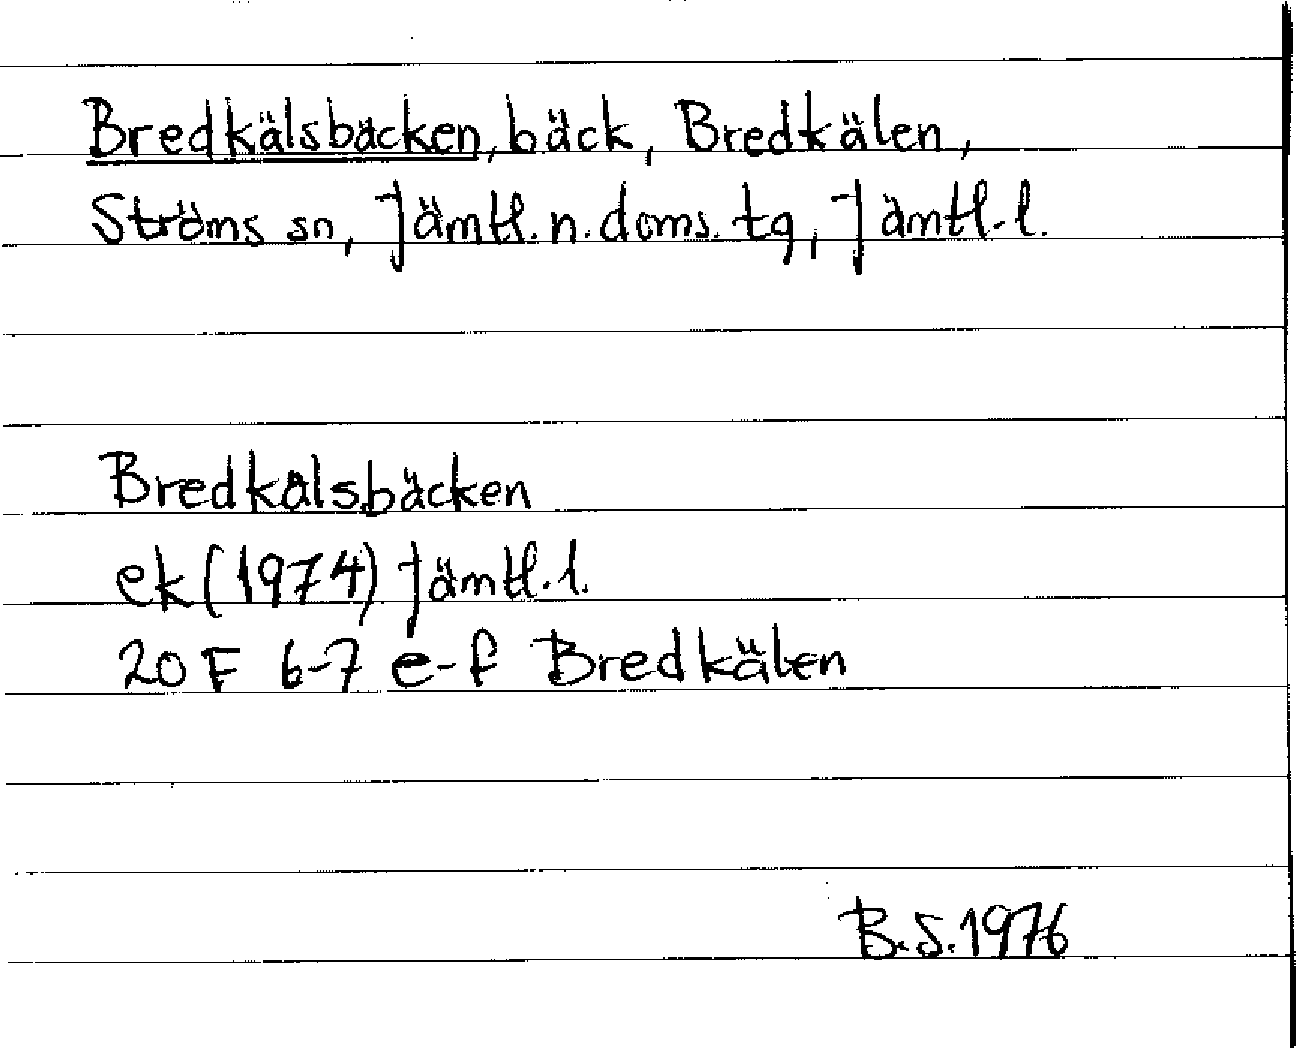 Bredkälsbäcken, bäck, Bredkälen,
Ströms sn, Jämtl. n. doms. tg, Jämtl. l.
Bredkälsbäcken
ek (1974) Jämtl. l.
20 F 6-7 e-f Bredkälen
B.S. 1976